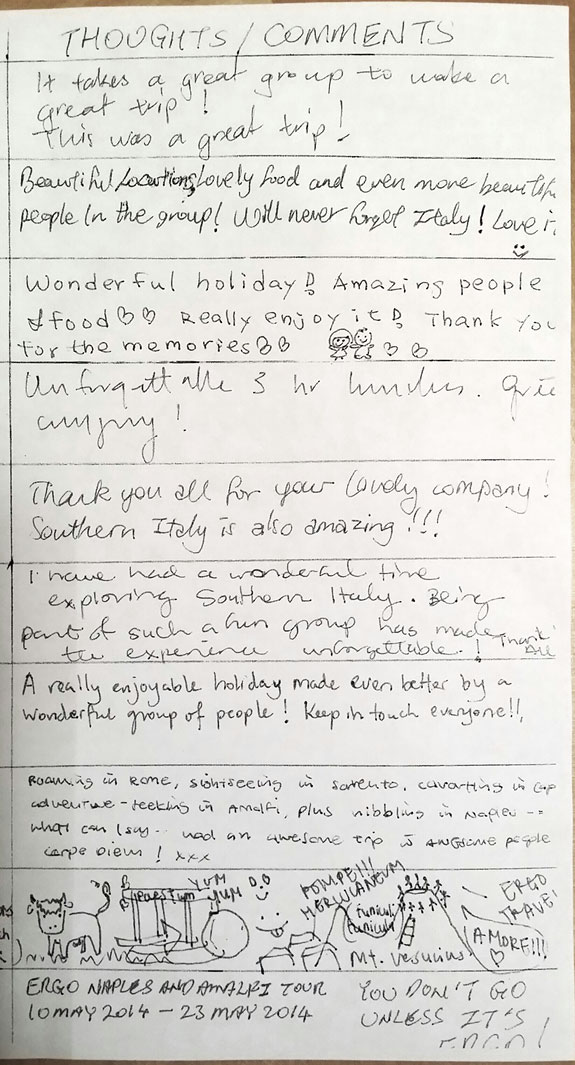 THOUGHTS / COMMENTS
It takes a great group to make a
great trip !
This was a great trip !
Beautiful Locations, Lovely food and even more beautiful
people in the group! Will never forget Italy! Love it
Wonderful holiday! Amazing people
& food Really enjoy it! Thank you
for the memories
Unforgettable 3 hr lunches.
company!
Thank you all for your lovely company!
Southern Italy is also amazing !!!
I have had a wonderful time
exploring Southern Italy. Being
part of such a fun group has made
the experience unforgettable. ! Thank
All
A really enjoyable holiday made even better by a
wonderful group of people! Keep in touch everyone!!
Roaming in Rome, sightseeing in Sorrento, cavorting in Cap
adventure-seeking in Amalfi, plus nibbling in Naples --
what can I say.. had an awesome trip awesome people
carpe diem ! xxx
Paestum
YUM
YUM
POMPEII!
HERCULANEUM
funiculi
funicula
Mt. Vesuvius
ERGO
TRAVEL
AMORE!!!!
ERGO NAPLES AND AMALFI TOUR
10 MAY 2014 - 23 MAY 2014
YOU DON'T GO
UNLESS IT'S
ERGO!